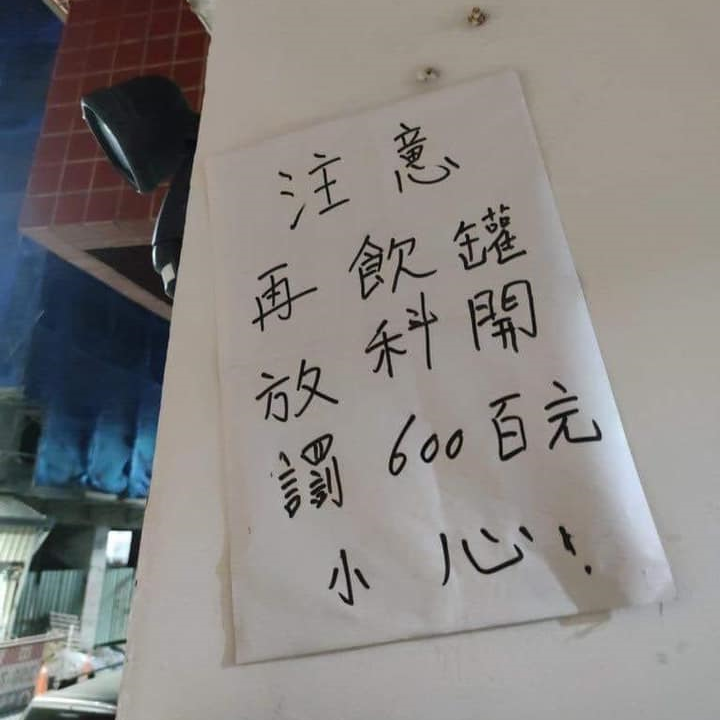 注意
再放
飲科
罐開
罰600百元
小心!